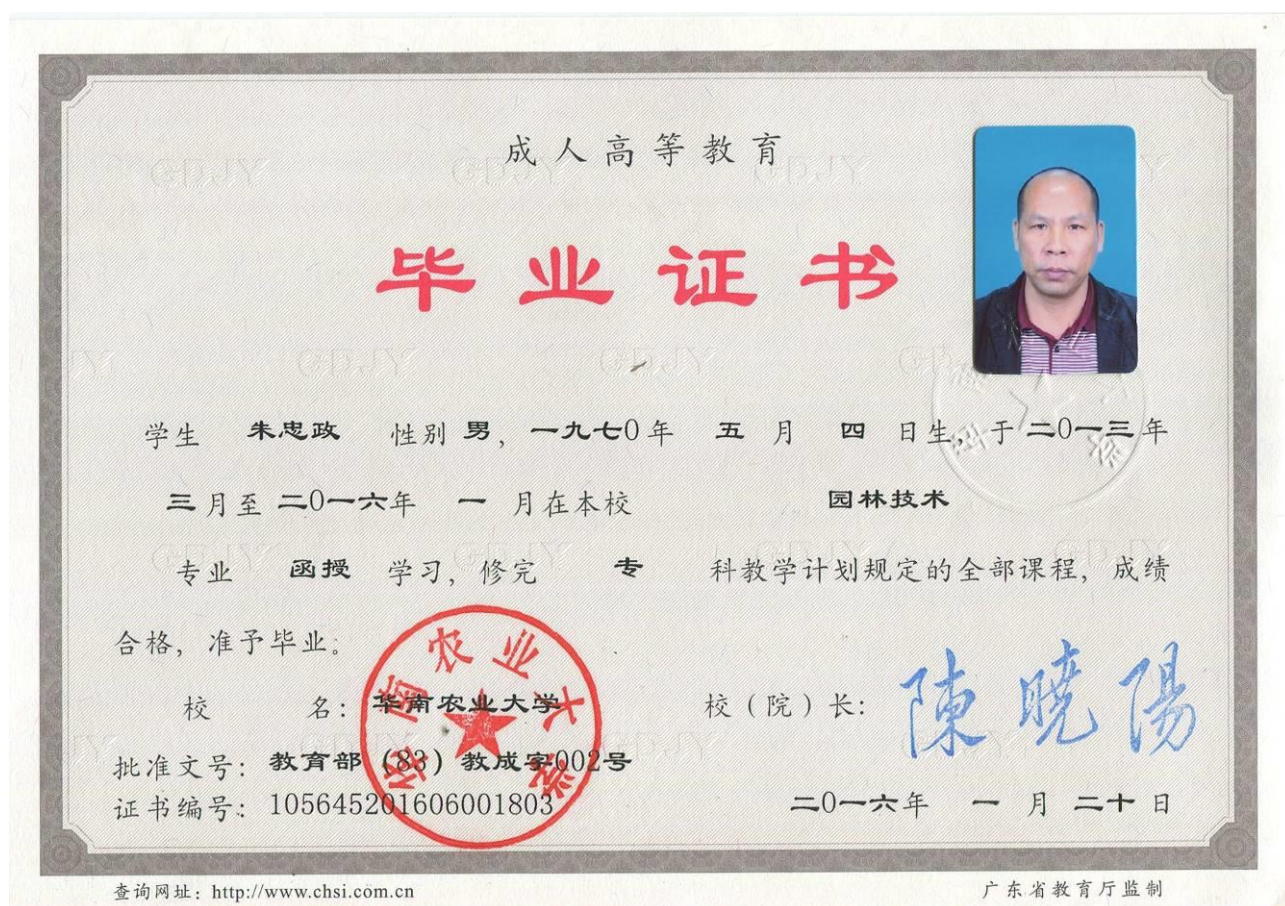 成人高等教育
毕业证书
学生 朱忠政 性别 男，一九七0年 五 月 四 日生，于二0一三年
三月至二0一六年 一 月在本校 园林技术
专业 函授 学习，修完 专 科教学计划规定的全部课程，成绩
合格，准予毕业。
校 名：华南农业大学
校（院）长：陳曉陽
批准文号：教育部（83）教成字002号
证书编号：105645201606001803
二0一六年 一 月 二十 日
华南农业大学
查询网址：http://www.chsi.com.cn
广东省教育厅监制
GDJY